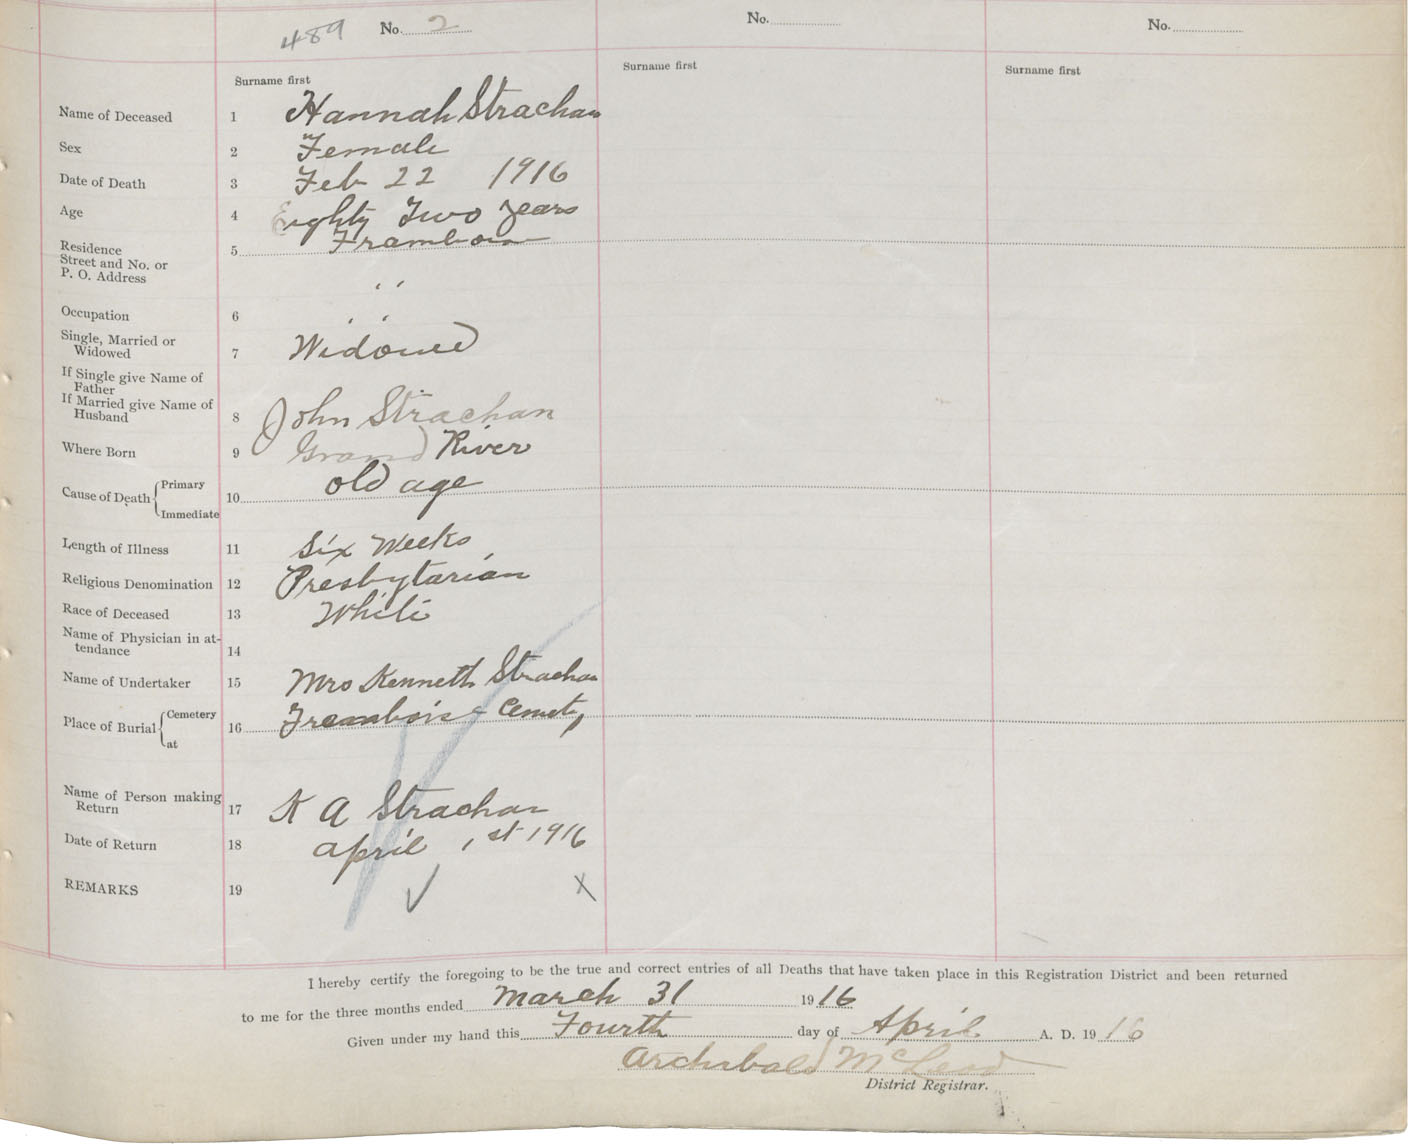 489 No. 2 No. No.
Surname first Surname first Surname first
Name of Deceased 1 Hannah Strachan
Sex 2 Female
Date of Death 3 Feb 22 1916
Age 4 Eighty Two years
Residence
Street and No. or
P. O. Address 5 Framboise
" "
Occupation 6 " "
Single, Married or
Widowed 7 Widowed
If Single give Name of
Father
If Married give Name of
Husband 8 John Strachan
Where Born 9 Grand River
Cause of Death { Primary
Immediate 10 old age
Length of Illness 11 Six Weeks
Religious Denomination 12 Presbytarian
Race of Deceased 13 White
Name of Physician in at-
tendance 14
Name of Undertaker 15 Mrs Kenneth Strachan
Place of Burial { Cemetery
at 16 Framboise Cemety
Name of Person making
Return 17 K A Strachan
Date of Return 18 april 1st 1916
REMARKS 19 ✓ x
I hereby certify the foregoing to be the true and correct entries of all Deaths that have taken place in this Registration District and been returned
to me for the three months ended March 31 1916
Given under my hand this Fourth day of April A. D. 1916
Archibald McLeod
District Registrar.